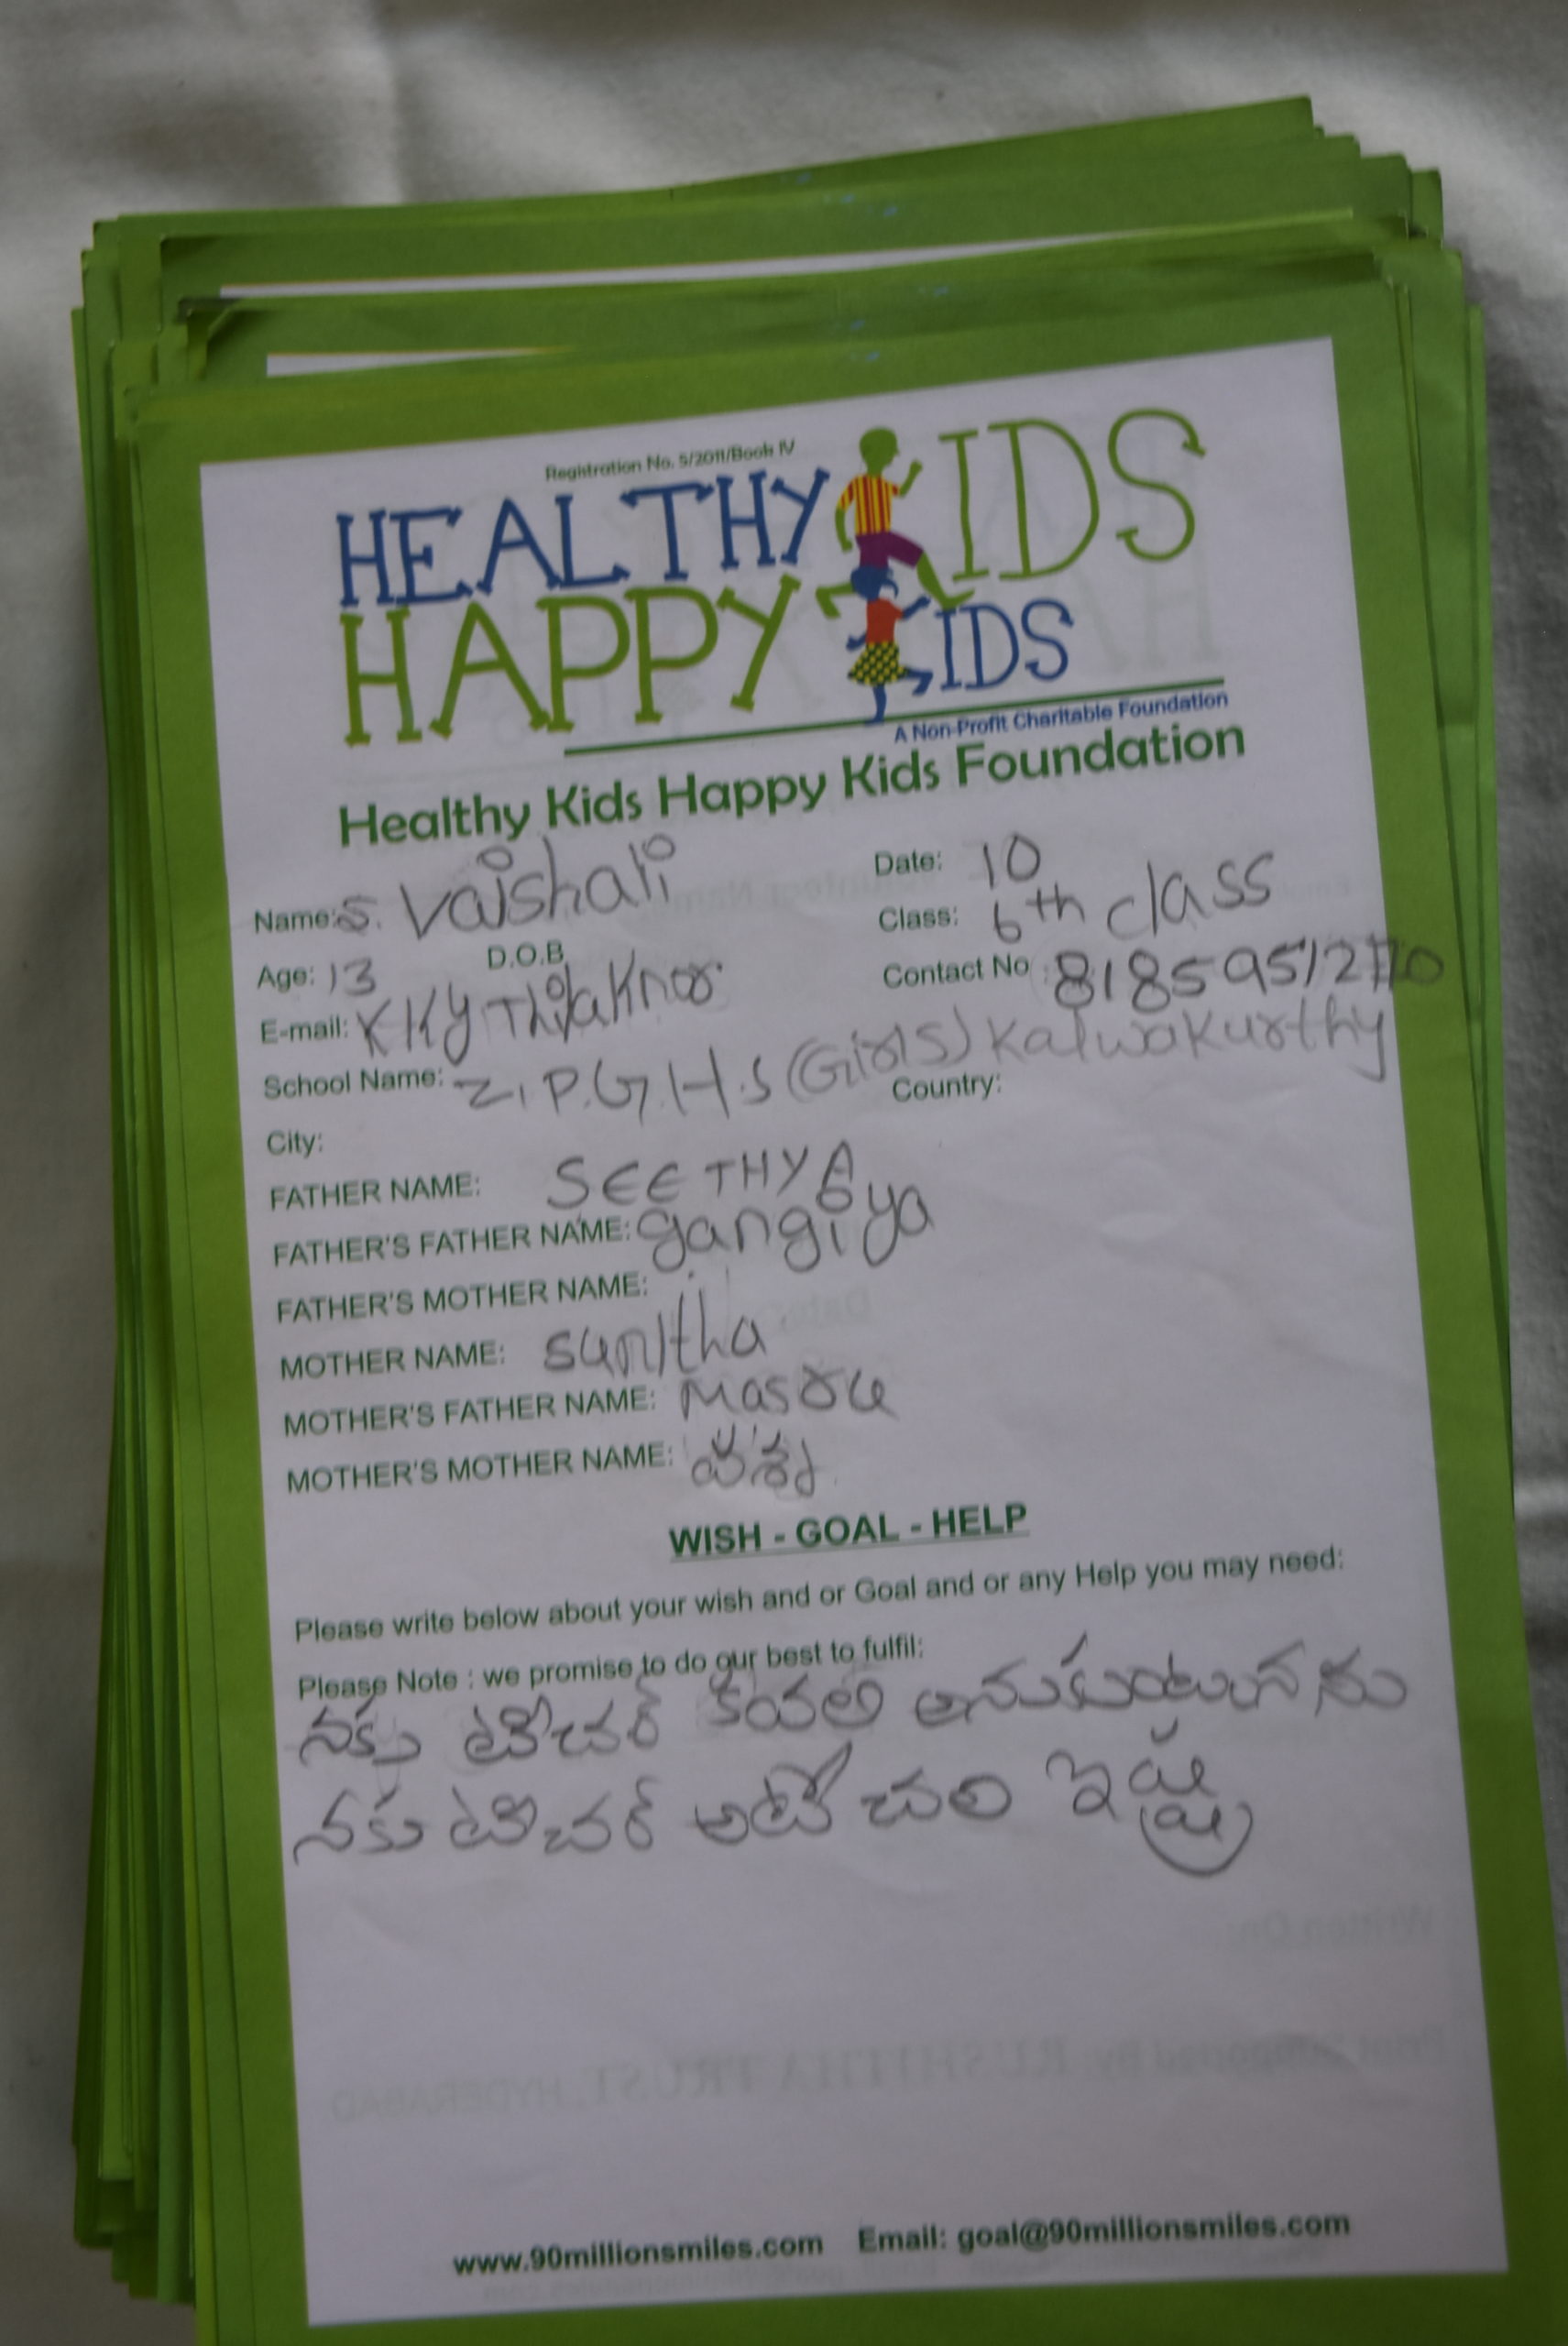 Registration No. 5/2011/Book IV
HEALTHY KIDS
HAPPY KIDS
A Non-Profit Charitable Foundation
Healthy Kids Happy Kids Foundation
Name: S. Vaishali Date: 10
Class: 6th class
Age: 13 D.O.B Contact No 8185951270
E-mail: KKY
School Name: Z.P.G.H.S (Girls) Kalwakurthy
City: Country:
FATHER NAME: SEETHYA
FATHER'S FATHER NAME: gangiya
FATHER'S MOTHER NAME:
MOTHER NAME: sunitha
MOTHER'S FATHER NAME: Masru
MOTHER'S MOTHER NAME:
WISH - GOAL - HELP
Please write below about your wish and or Goal and or any Help you may need:
Please Note : we promise to do our best to fulfil:
నకు టిచర్ కవలి అనుకుంటునను
నకు టిచర్ అటే చల ఇష్ట
www.90millionsmiles.com Email: goal@90millionsmiles.com